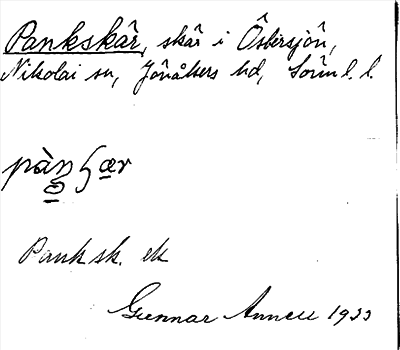 Pankskär, skär i Östersjön,
Nikolai sn, Jönåkers hd, Sörml. l.
Panksk. ek
Gunnar Annell 1933